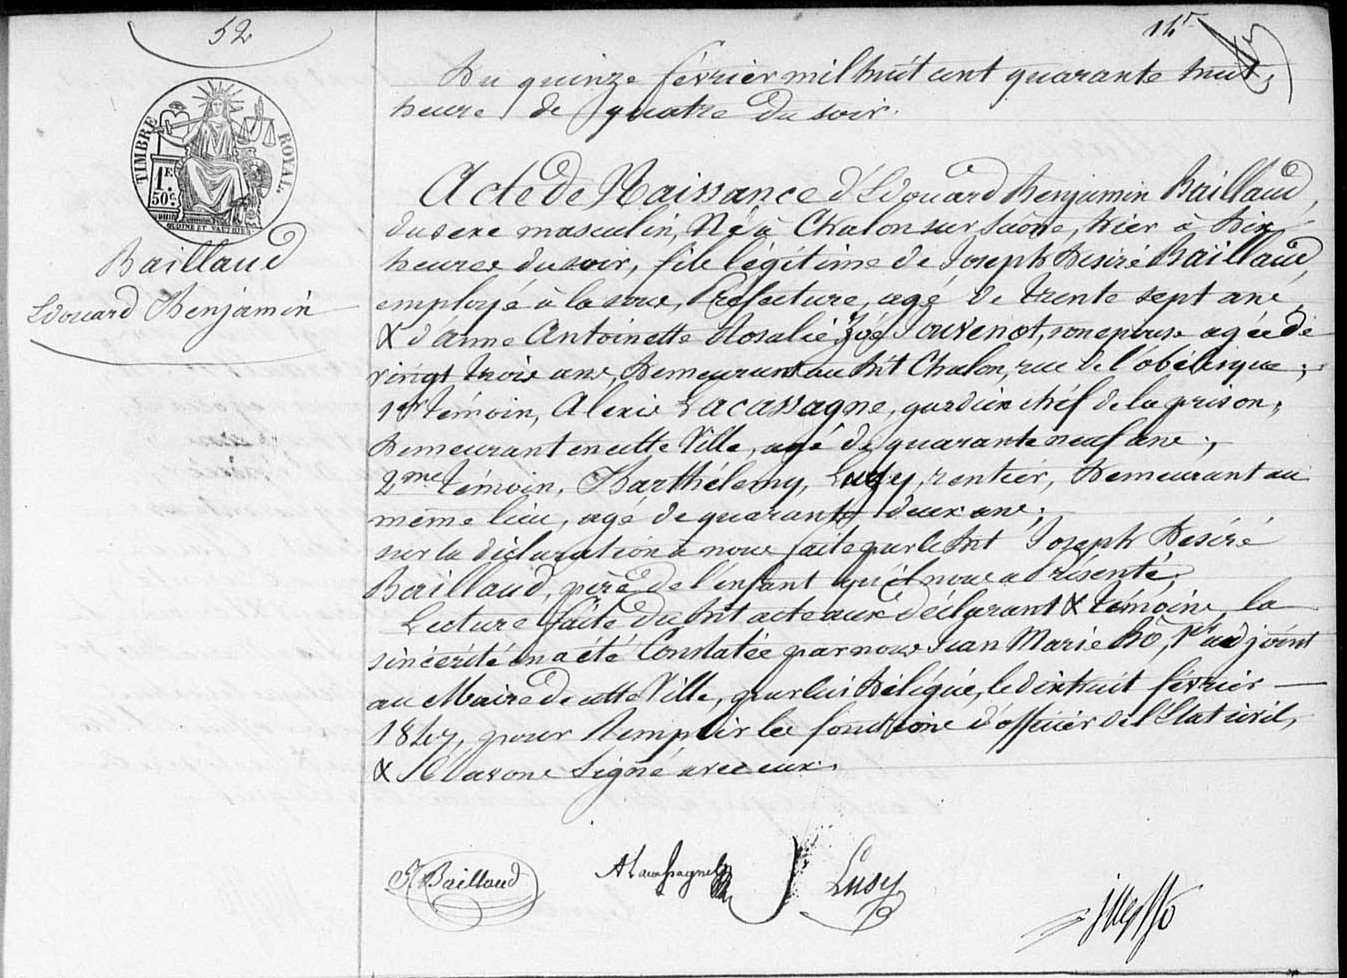 52
14r
TIMBRE ROYAL.
1F.
50c.
Baillaud
Edouard Benjamin
Du quinze février mil huit cent quarante huit,
heure de quatre du soir.
Acte de Naissance d'Edouard Benjamin Baillaud,
du sexe masculin, Né à Chalon sur Saône, hier à Dix
heures du soir, fils légitime de Joseph Désiré Baillaud,
employé à la sous Préfecture, agé de trente sept ans,
& d'anne Antoinette Rosalie Zoé Jouvenot, son épouse agée de
vingt trois ans, Demeurant au dit Chalon, rue de l'obélisque;
1er témoin, Alexis Lacassagne, gardien chéf de la prison,
Demeurant en cette Ville, agé de quarante neuf ans;
2me témoin, Barthélemy, Lusy, rentier, Demeurant au
même lieu, agé de quarante deux ans;
sur la déclaration à nous faite par le dit Joseph Désiré
Baillaud, père de l'enfant qu'il nous a présenté,
Lecture faite du dit acte aux déclarant & témoins, la
sincérité en a été Constatée par nous Jean Marie Bô, 1er adjoint
au Maire de cette Ville, par lui Délégué, le dix huit février
1847, pour Remplir les fonctions d'officier de l'Etat civil,
& Nous avons signé avec eux.
J Baillaud
A Lacassagne
Lusy